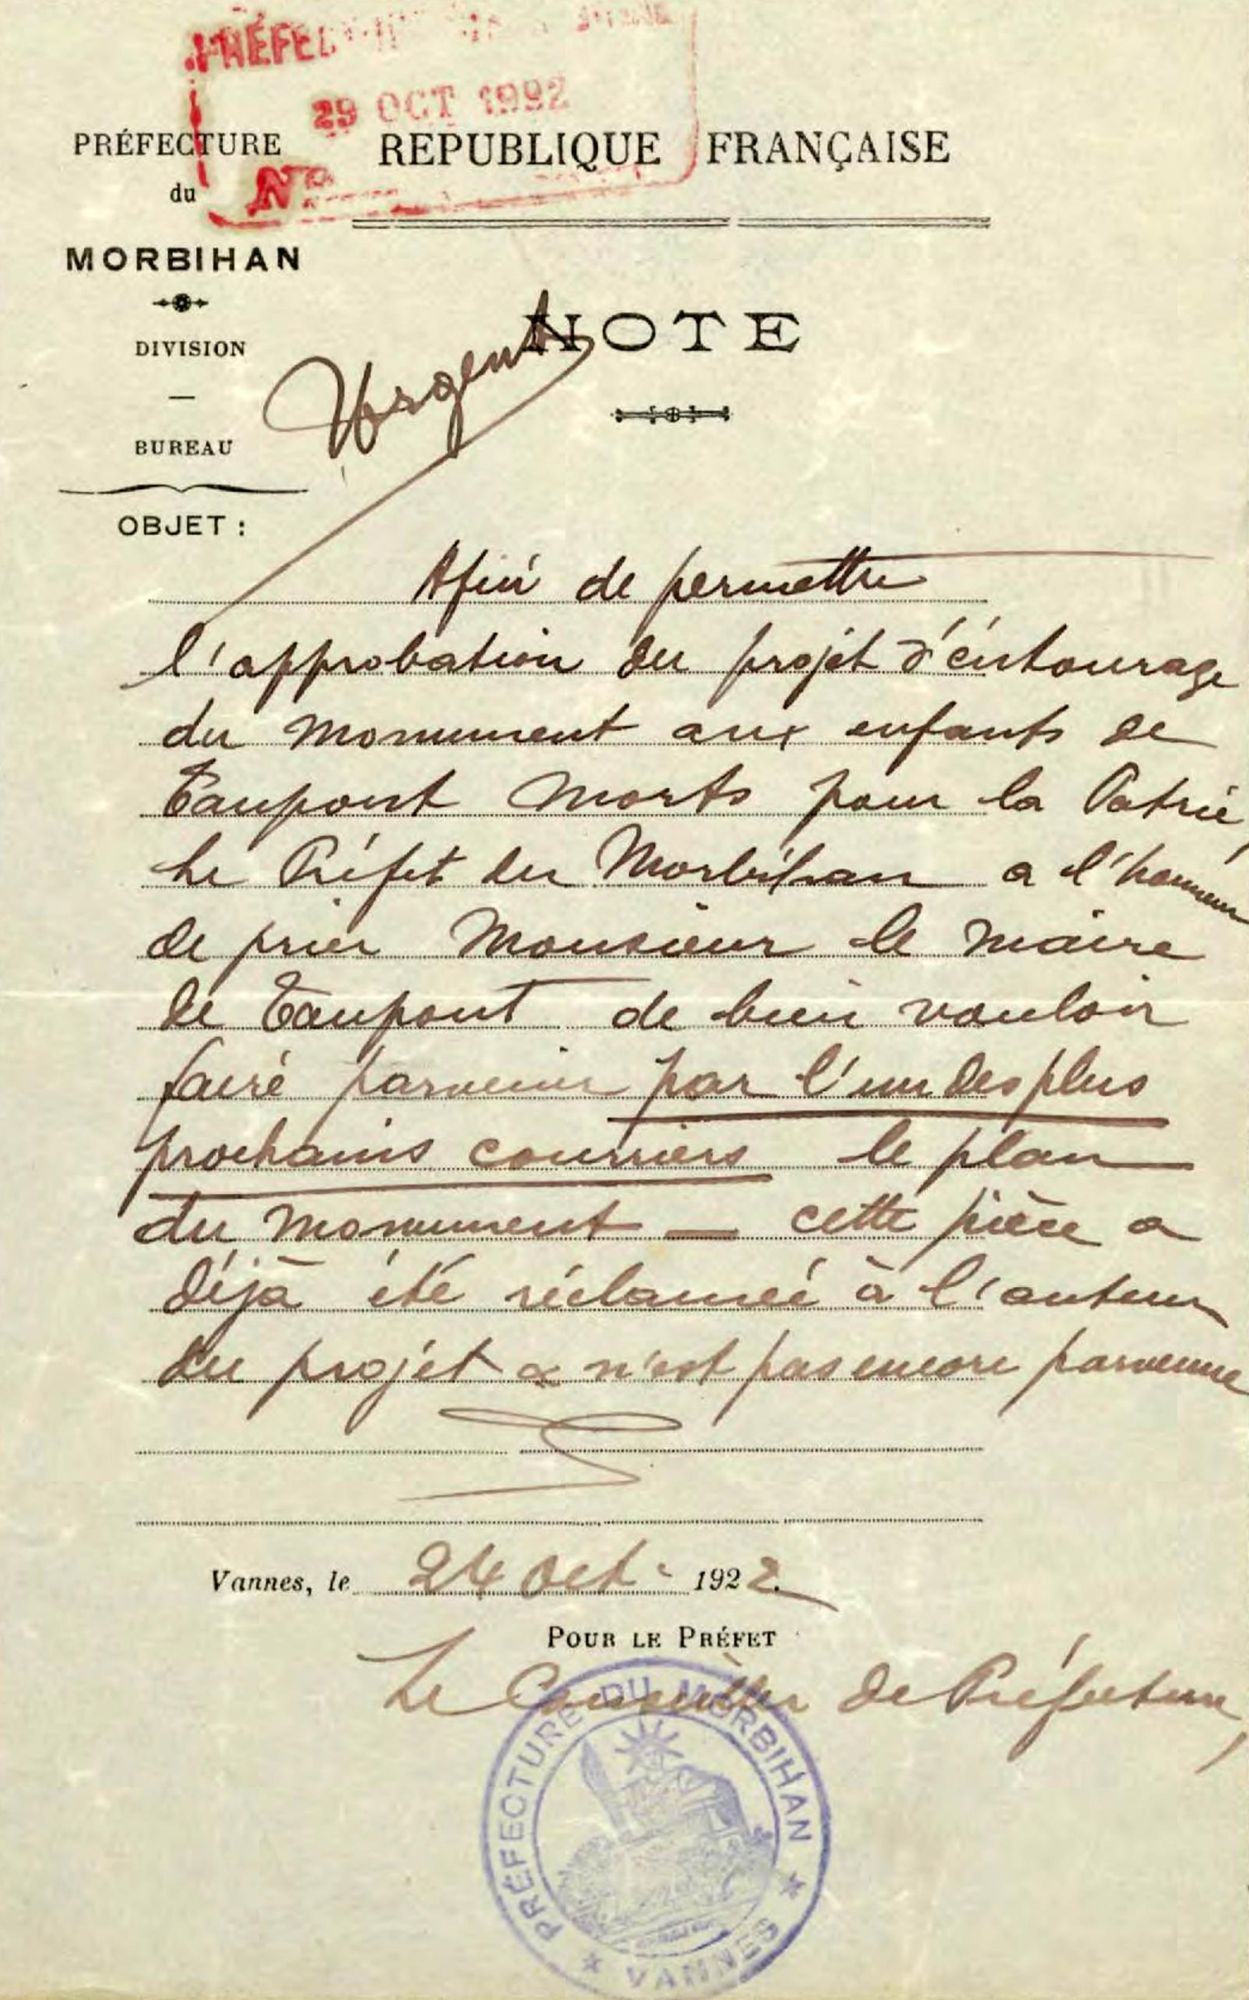 PRÉFECTURE
29 OCT 1922
N°
PRÉFECTURE
du
MORBIHAN
DIVISION
BUREAU
OBJET :
REPUBLIQUE FRANÇAISE
NOTE
Urgent
Afin de permettre
l'approbation du projet d'entourage
du Monument aux enfants de
Taupont Morts pour la Patrie,
Le Préfet du Morbihan a l'honneur
de prier Monsieur le Maire
de Taupont de bien vouloir
faire parvenir par l'un des plus
prochains courriers le plan
du Monument — cette pièce a
déjà été réclamée à l'auteur
du projet & n'est pas encore parvenue
Vannes, le 24 Oct. 1922.
POUR LE PRÉFET
Le Conseiller de Préfecture,
PRÉFECTURE DU MORBIHAN
★ VANNES ★